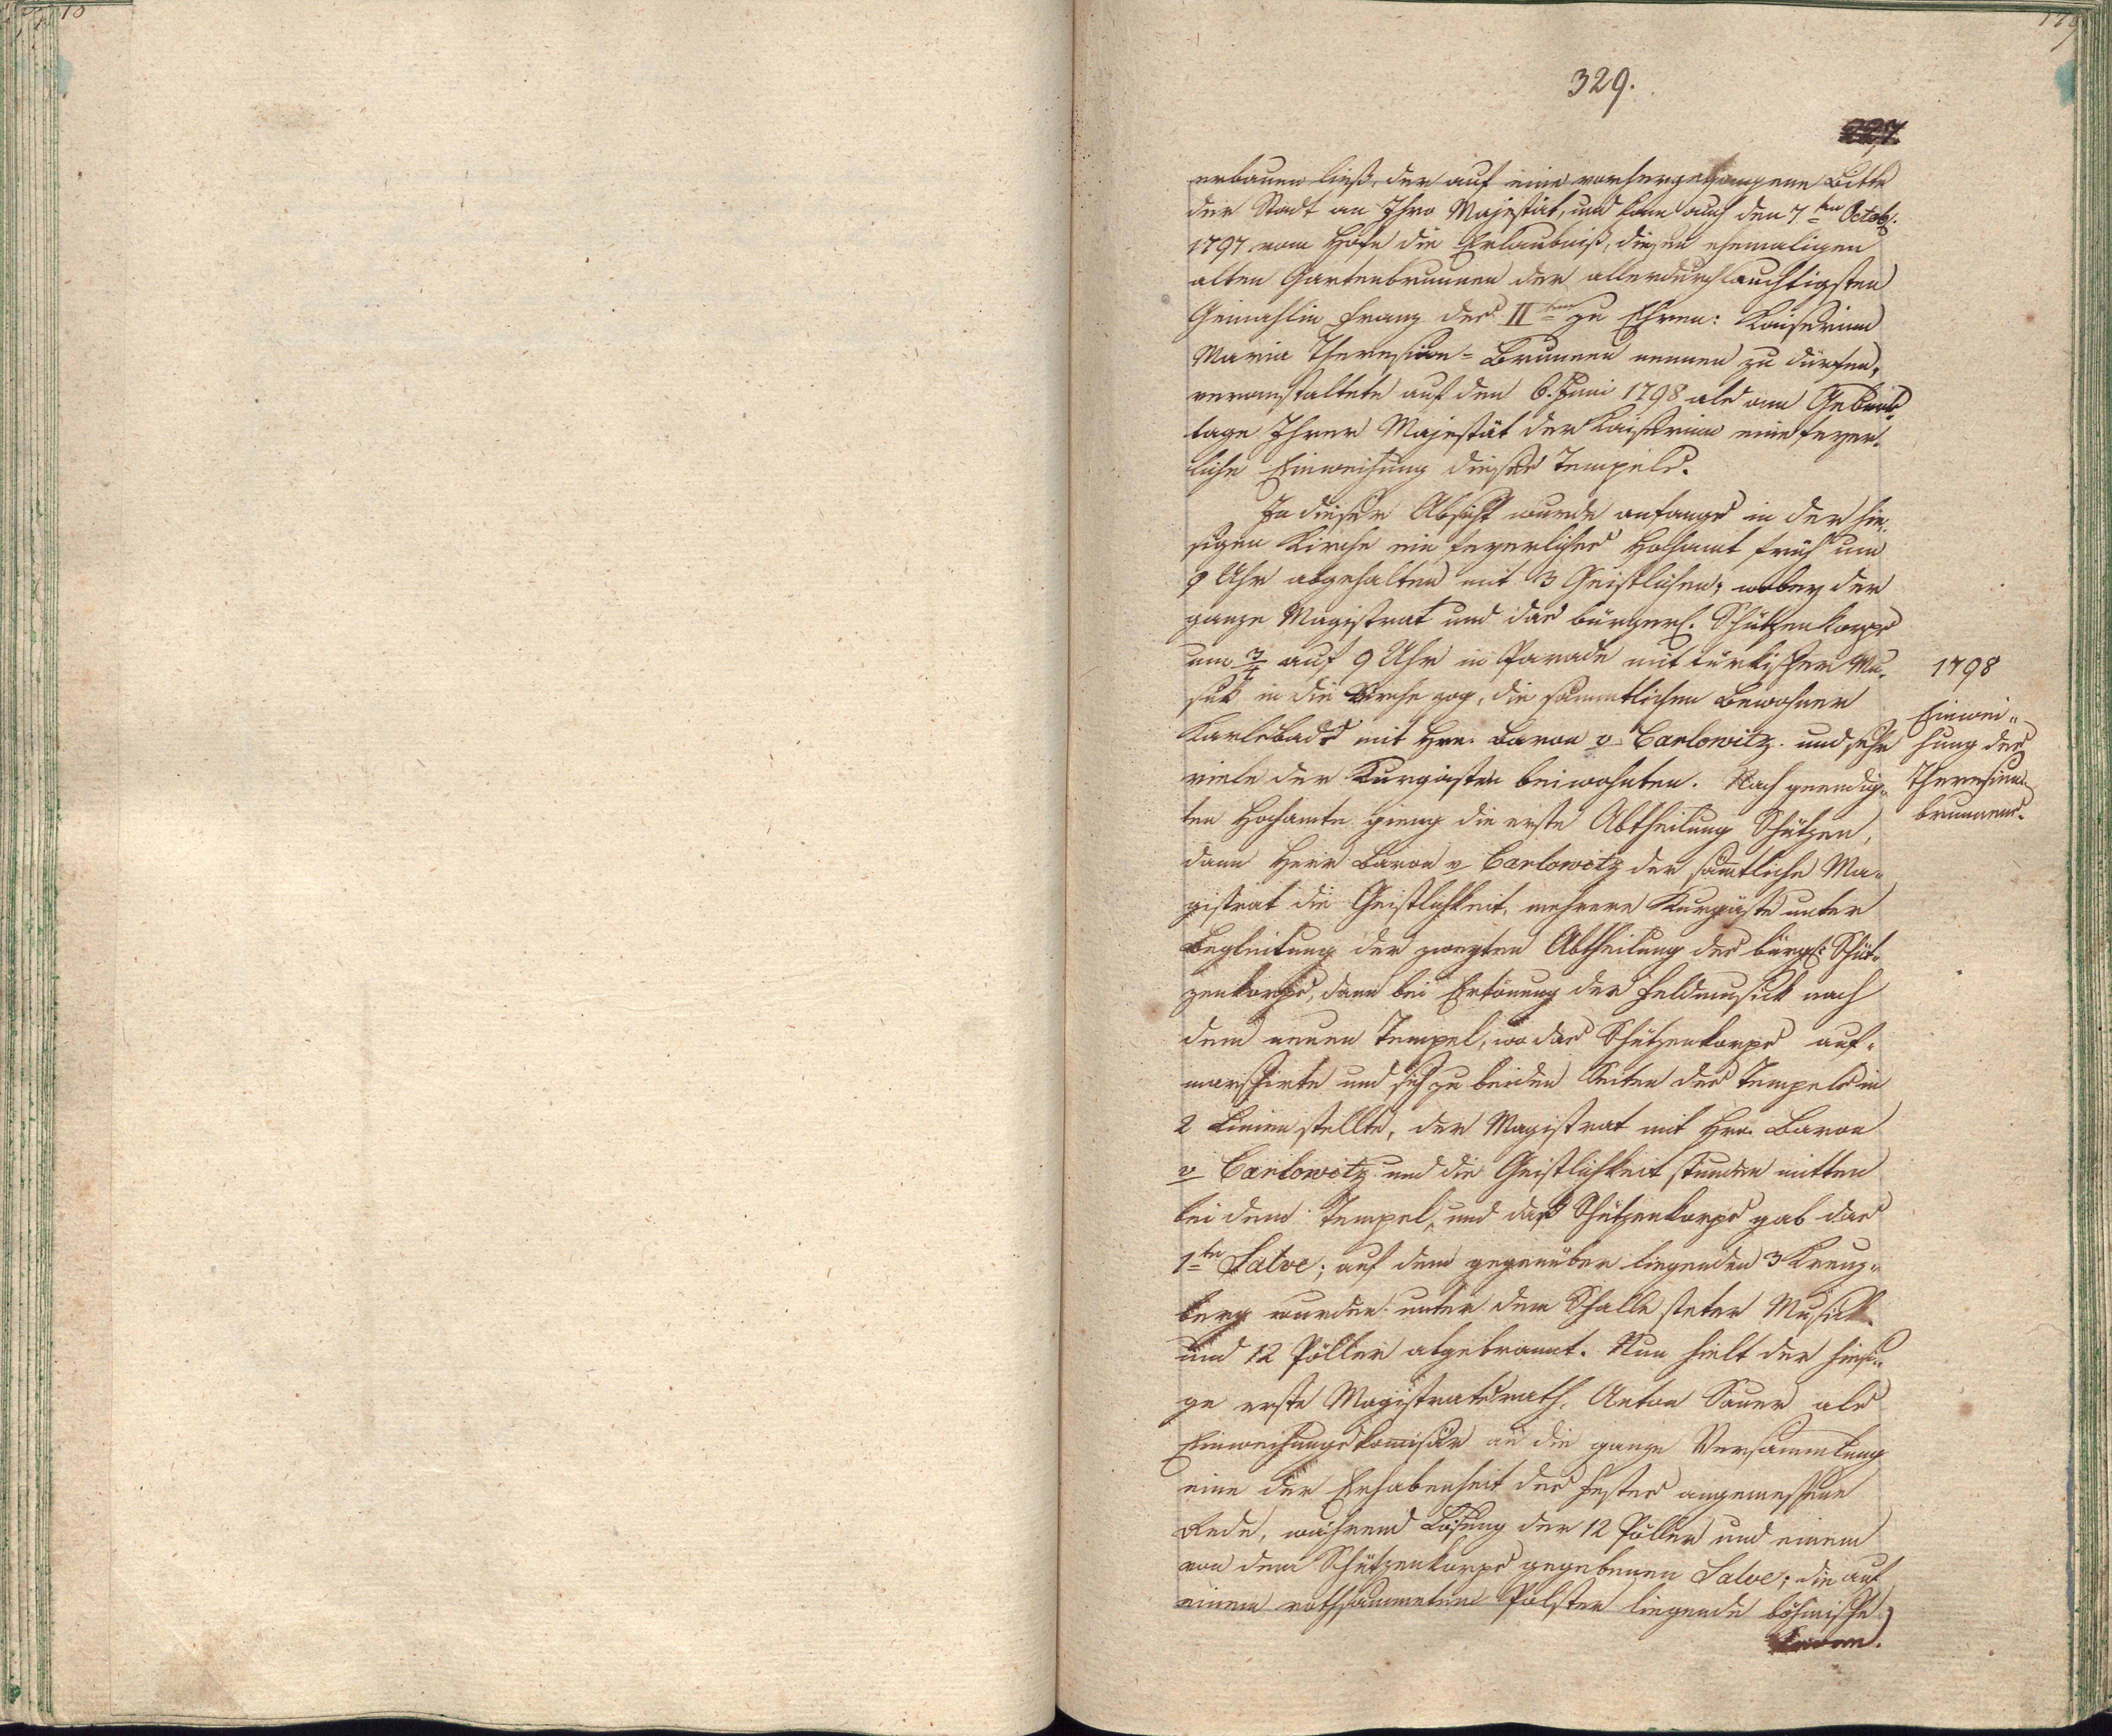 329.
227.
erbauen ließ, der auf eine vorhergegangene Bitte
der Stadt an Ihro Majestät, und kam auch den 7ten Octob.
1797 vom Hofe die Erlaubniß, diesen ehemaligen
alten Gartenbrunnen der allerdurchlauchtigsten
Gemahlin Franz des IIten zu Ehren: Kaiserinn
Maria Theresien-Brunnen nennen zu dürfen,
veranstaltete auf den 6. Juni 1798 als am Geburts
tage Ihrer Majestät der Kaiserinn eine feyer-
liche Einweihung dieses Tempels.
In dieser Absicht wurde anfangs in der hie-
sigen Kirche ein feyerliches Hochamt früh um
9 Uhr abgehalten mit 3 Geistlichen; wobey der
ganze Magistrat und das bürgerl. Schützenkorps
um 3/4 auf 9 Uhr in Parade mit türkischer Mu-
sik in die Kirche zog, die sämmtlichen Bewohner
Karlsbads mit Hrn. Baron v Carlowitz und sehr
viele der Kurgästen beiwohnten. Nach geendig-
ten Hochamte gieng die erste Abtheilung Schützen,
dann Herr Baron v Carlowitz der sämtliche Ma-
gistrat die Geistlichkeit, mehrere Kurgäste unter
Begleitung der zweyten Abtheilung des bürgl: Schüt-
zenkorps, dann bei Ertönung der Feldmusick nach
dem neuen Tempel, wo das Schützenkorps auf-
marschirte und sich zu beiden Seiten des Tempels in
2 Linien stellte, der Magistrat mit Hrn. Baron
v Carlowitz und die Geistlichkeit stunden mitten
bei dem Tempel, und das Schützenkorps gab das
1te Salve; auf dem gegenüber liegenden 3 Kreuz-
berg wurden unter dem Schalle steter Musick
und 12 Pöller abgebrannt. Nun hielt der hiesi-
ge erste Magistratsrath, Anton Sauer als
Einweihungskomisär an die ganze Versammlung
eine der Erhabenheit des Festes angemessene
Rede, während Lösung der 12 Pöller und einem
von dem Schützenkorps gegebenen Salve; die auf
einem rothsammetnen Polster liegende böhmische
Kronn.
1798
Einwei-
hung des
Theresien-
brunnens.